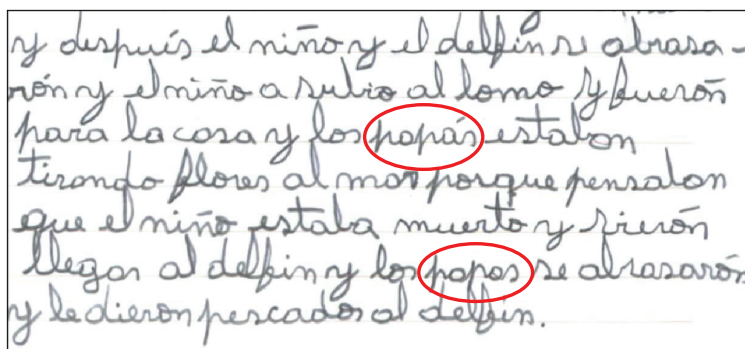 y después el niño y el delfin se abrasa-
rón y el niño a subio al lomo y fuerón
para la casa y los papás estaban
tirando flores al mar porque pensaban
que el niño estaba muerto y vierón
llegar al delfin y los papas se abrasarón
y le dieron pescados al delfin.